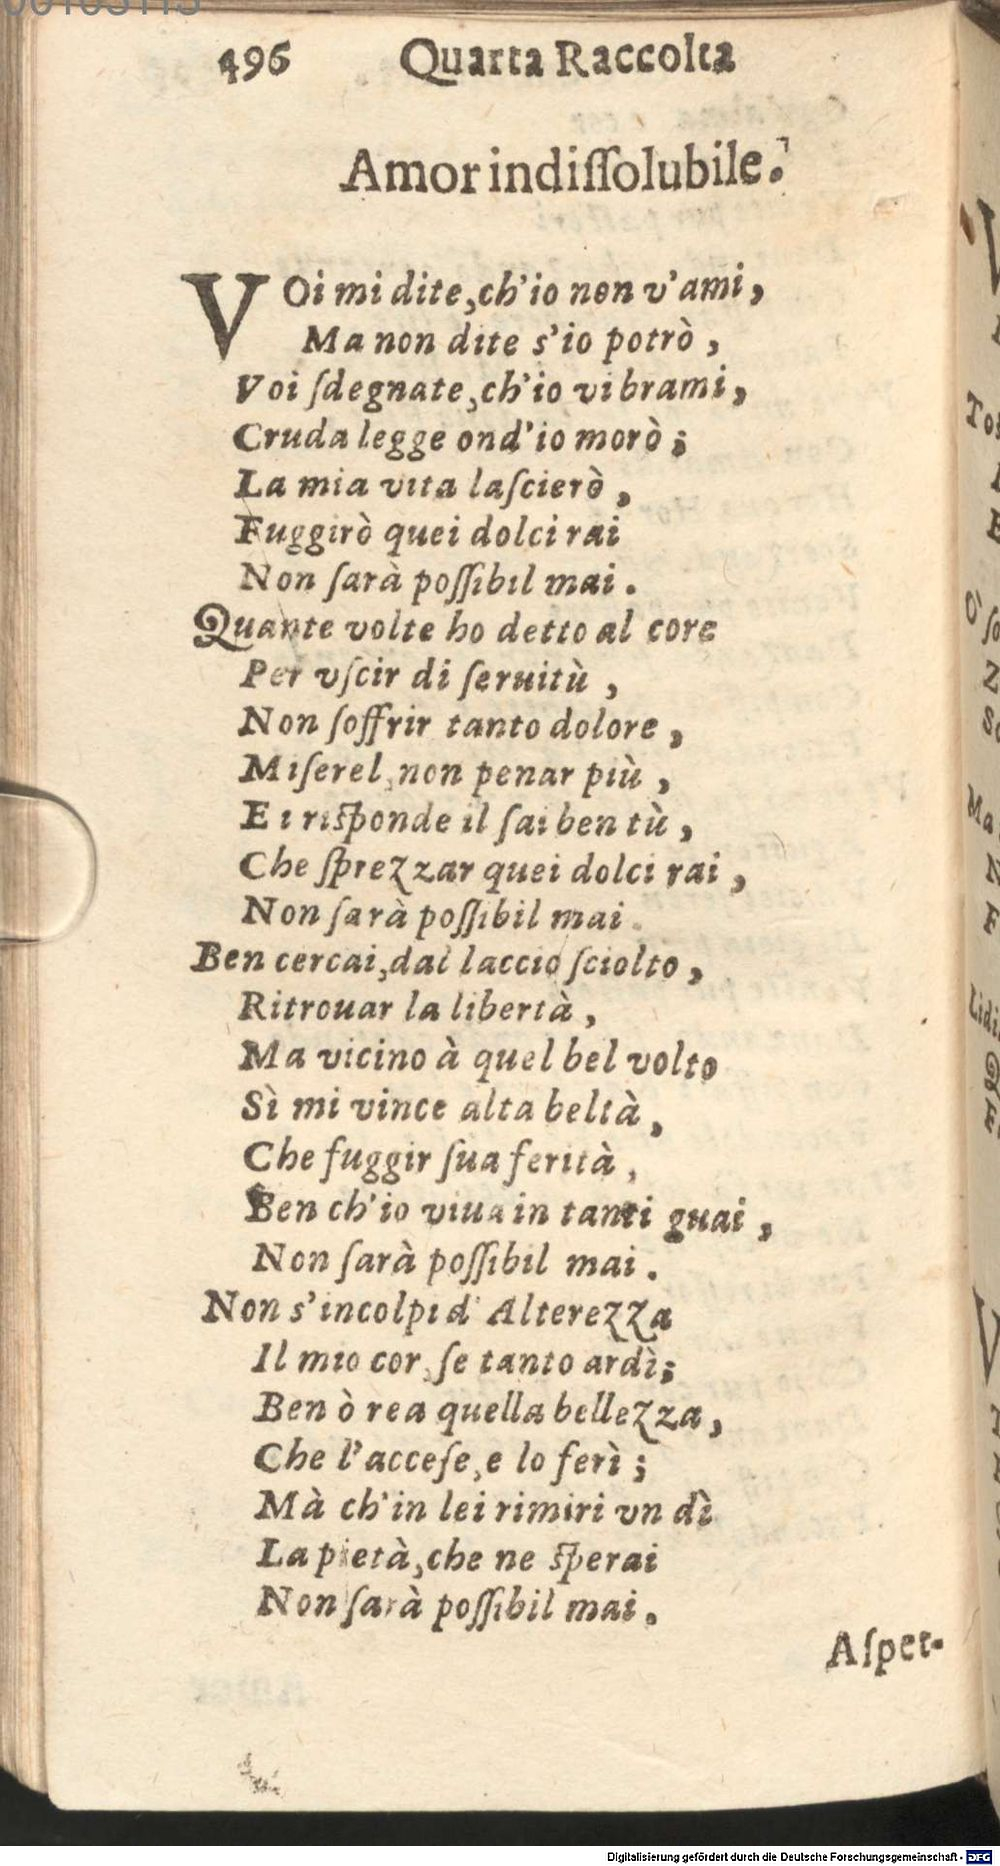 496 Quarta Raccolta
Amor indiſſolubile.
VOi mi dite, ch'io non v'ami,
Ma non dite s'io potrò,
Voi ſdegnate, ch'io vi brami,
Cruda legge ond'io morò;
La mia vita laſcierò,
Fuggirò quei dolci rai
Non ſarà poſſibil mai.
Quante volte ho detto al core
Per vſcir di ſeruitù,
Non ſoffrir tanto dolore,
Miſerel, non penar più,
Ei riſponde il ſai ben tù,
Che ſprezzar quei dolci rai,
Non ſarà poſſibil mai.
Ben cercai, dal laccio ſciolto,
Ritrouar la libertà,
Ma vicino à quel bel volto
Sì mi vince alta beltà,
Che fuggir ſua ferità,
Ben ch'io viua in tanti guai,
Non ſarà poſſibil mai.
Non s'incolpi d'Alterezza
Il mio cor, ſe tanto ardì;
Ben ò rea quella bellezza,
Che l'acceſe, e lo ferì;
Mà ch'in lei rimiri vn dì
La pietà, che ne ſperai
Non ſarà poſſibil mai.
Aſpet-
Digitalisierung gefördert durch die Deutsche Forschungsgemeinschaft - DFG